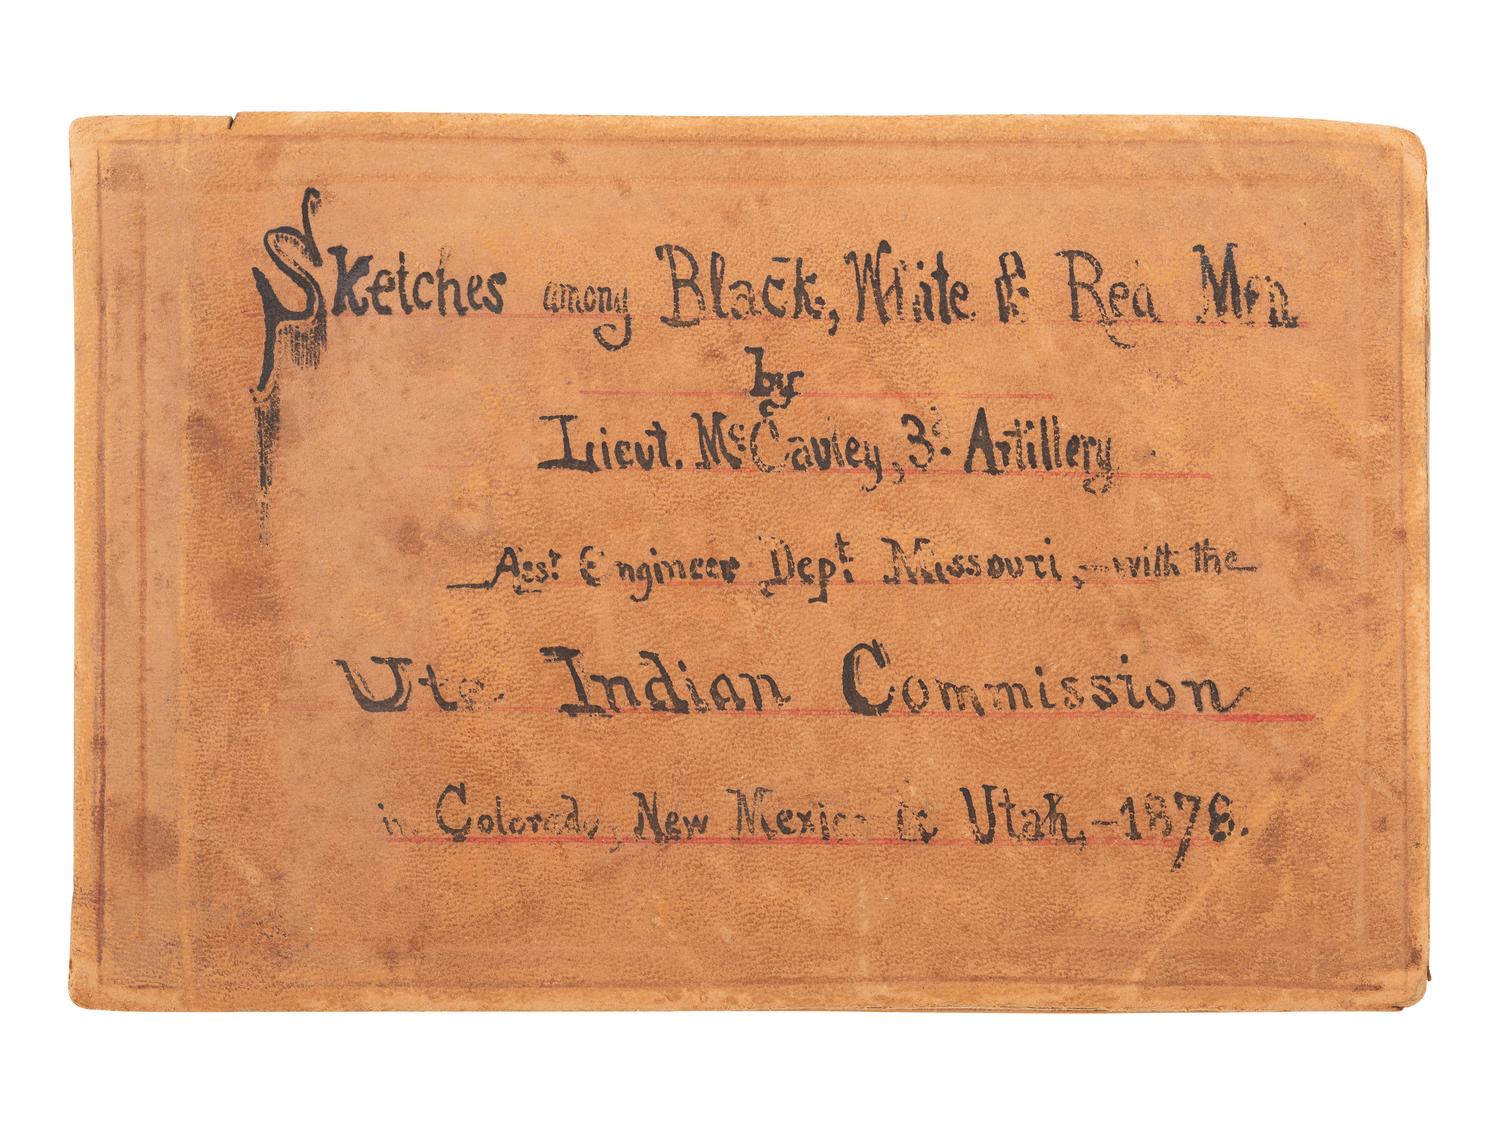 Sketches among Black, White & Red Men
by
Lieut. McCauley, 3d. Artillery
Asst Engineer Dept. Missouri, - with the
Ute Indian Commission
in Colorado, New Mexico & Utah, - 1878.